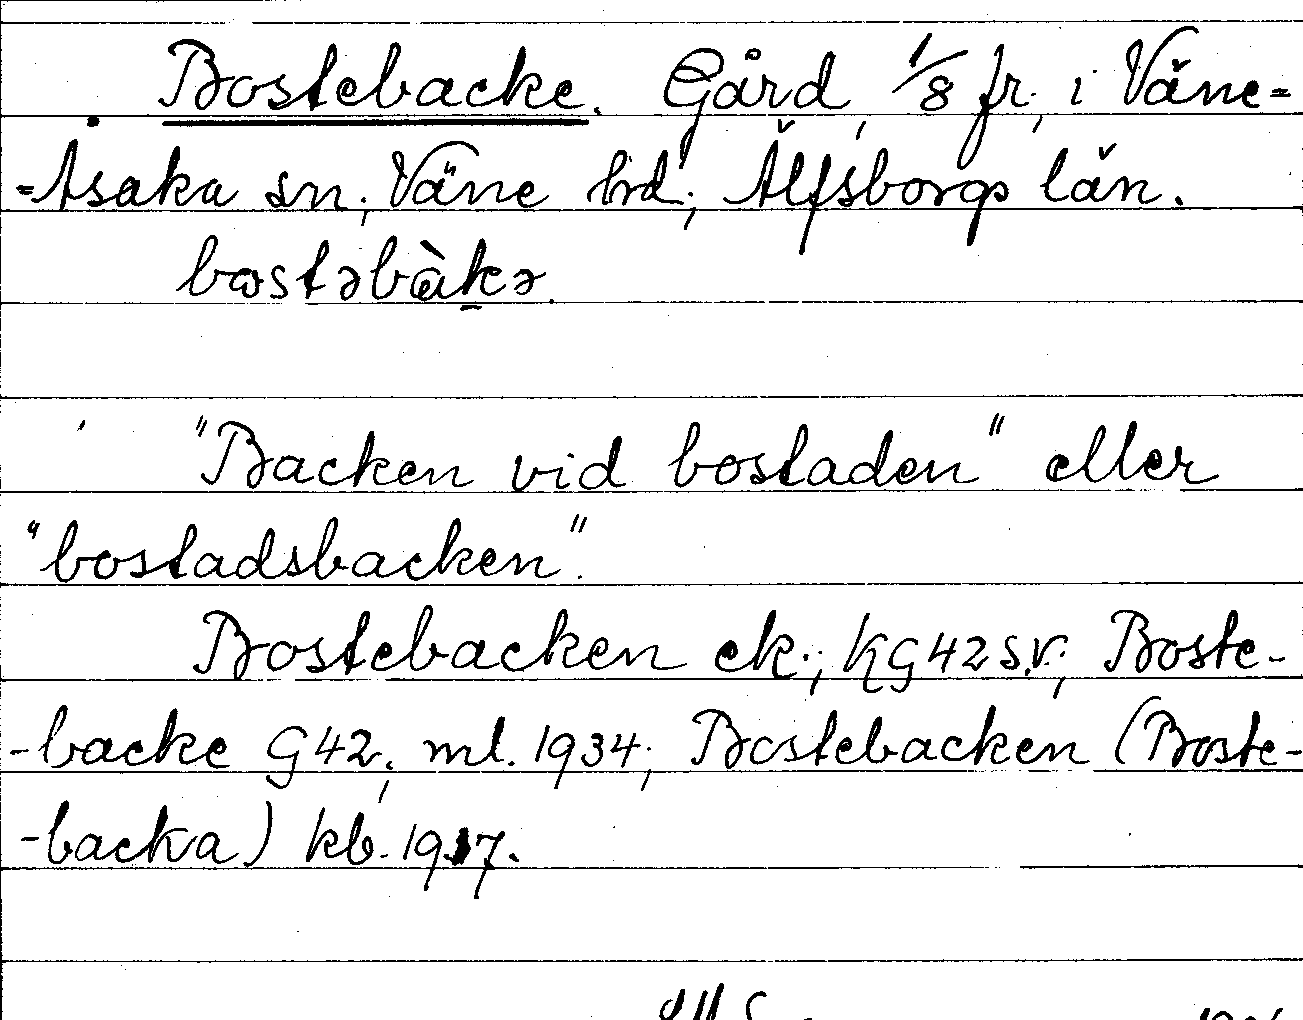 Bostebacke. Gård, 1/8 fr., i Väne=
=Åsaka sn, Väne hd, Älfsborgs län.
bostəbàkə.
"Backen vid bostaden" eller
"bostadsbacken".
Bostebacken ek.; KG42 s.v.; Boste-
-backe G42; ml. 1934; Bostebacken (Boste-
-backa) kb. 1917.